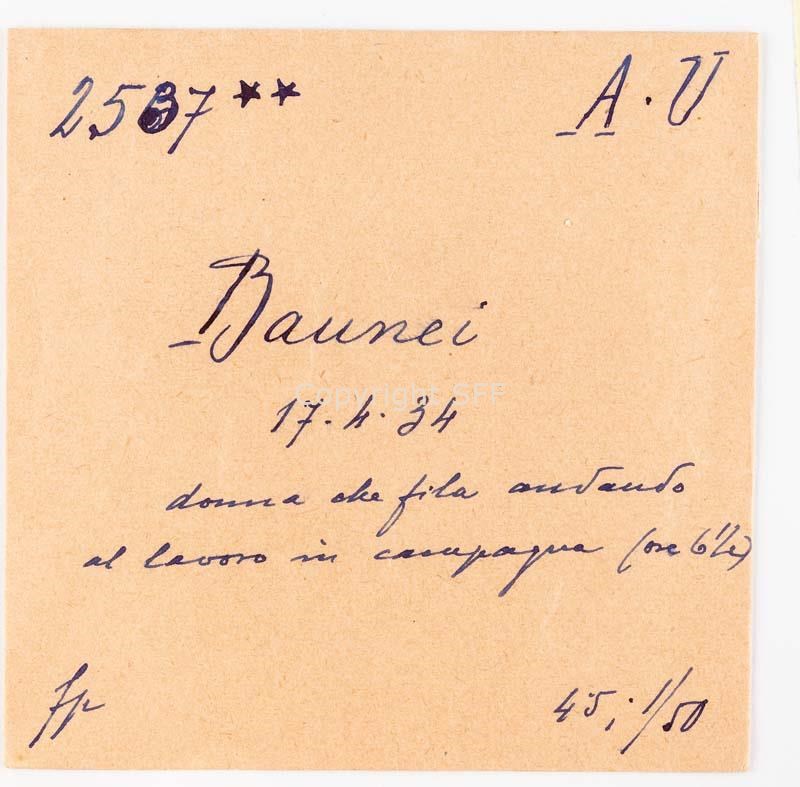 2537 ** A. V
Baunei
Copyright SFF
17. 4. 34
donna che fila andando
al lavoro in campagna (ore 6 1/2)
fp 45; 1/50